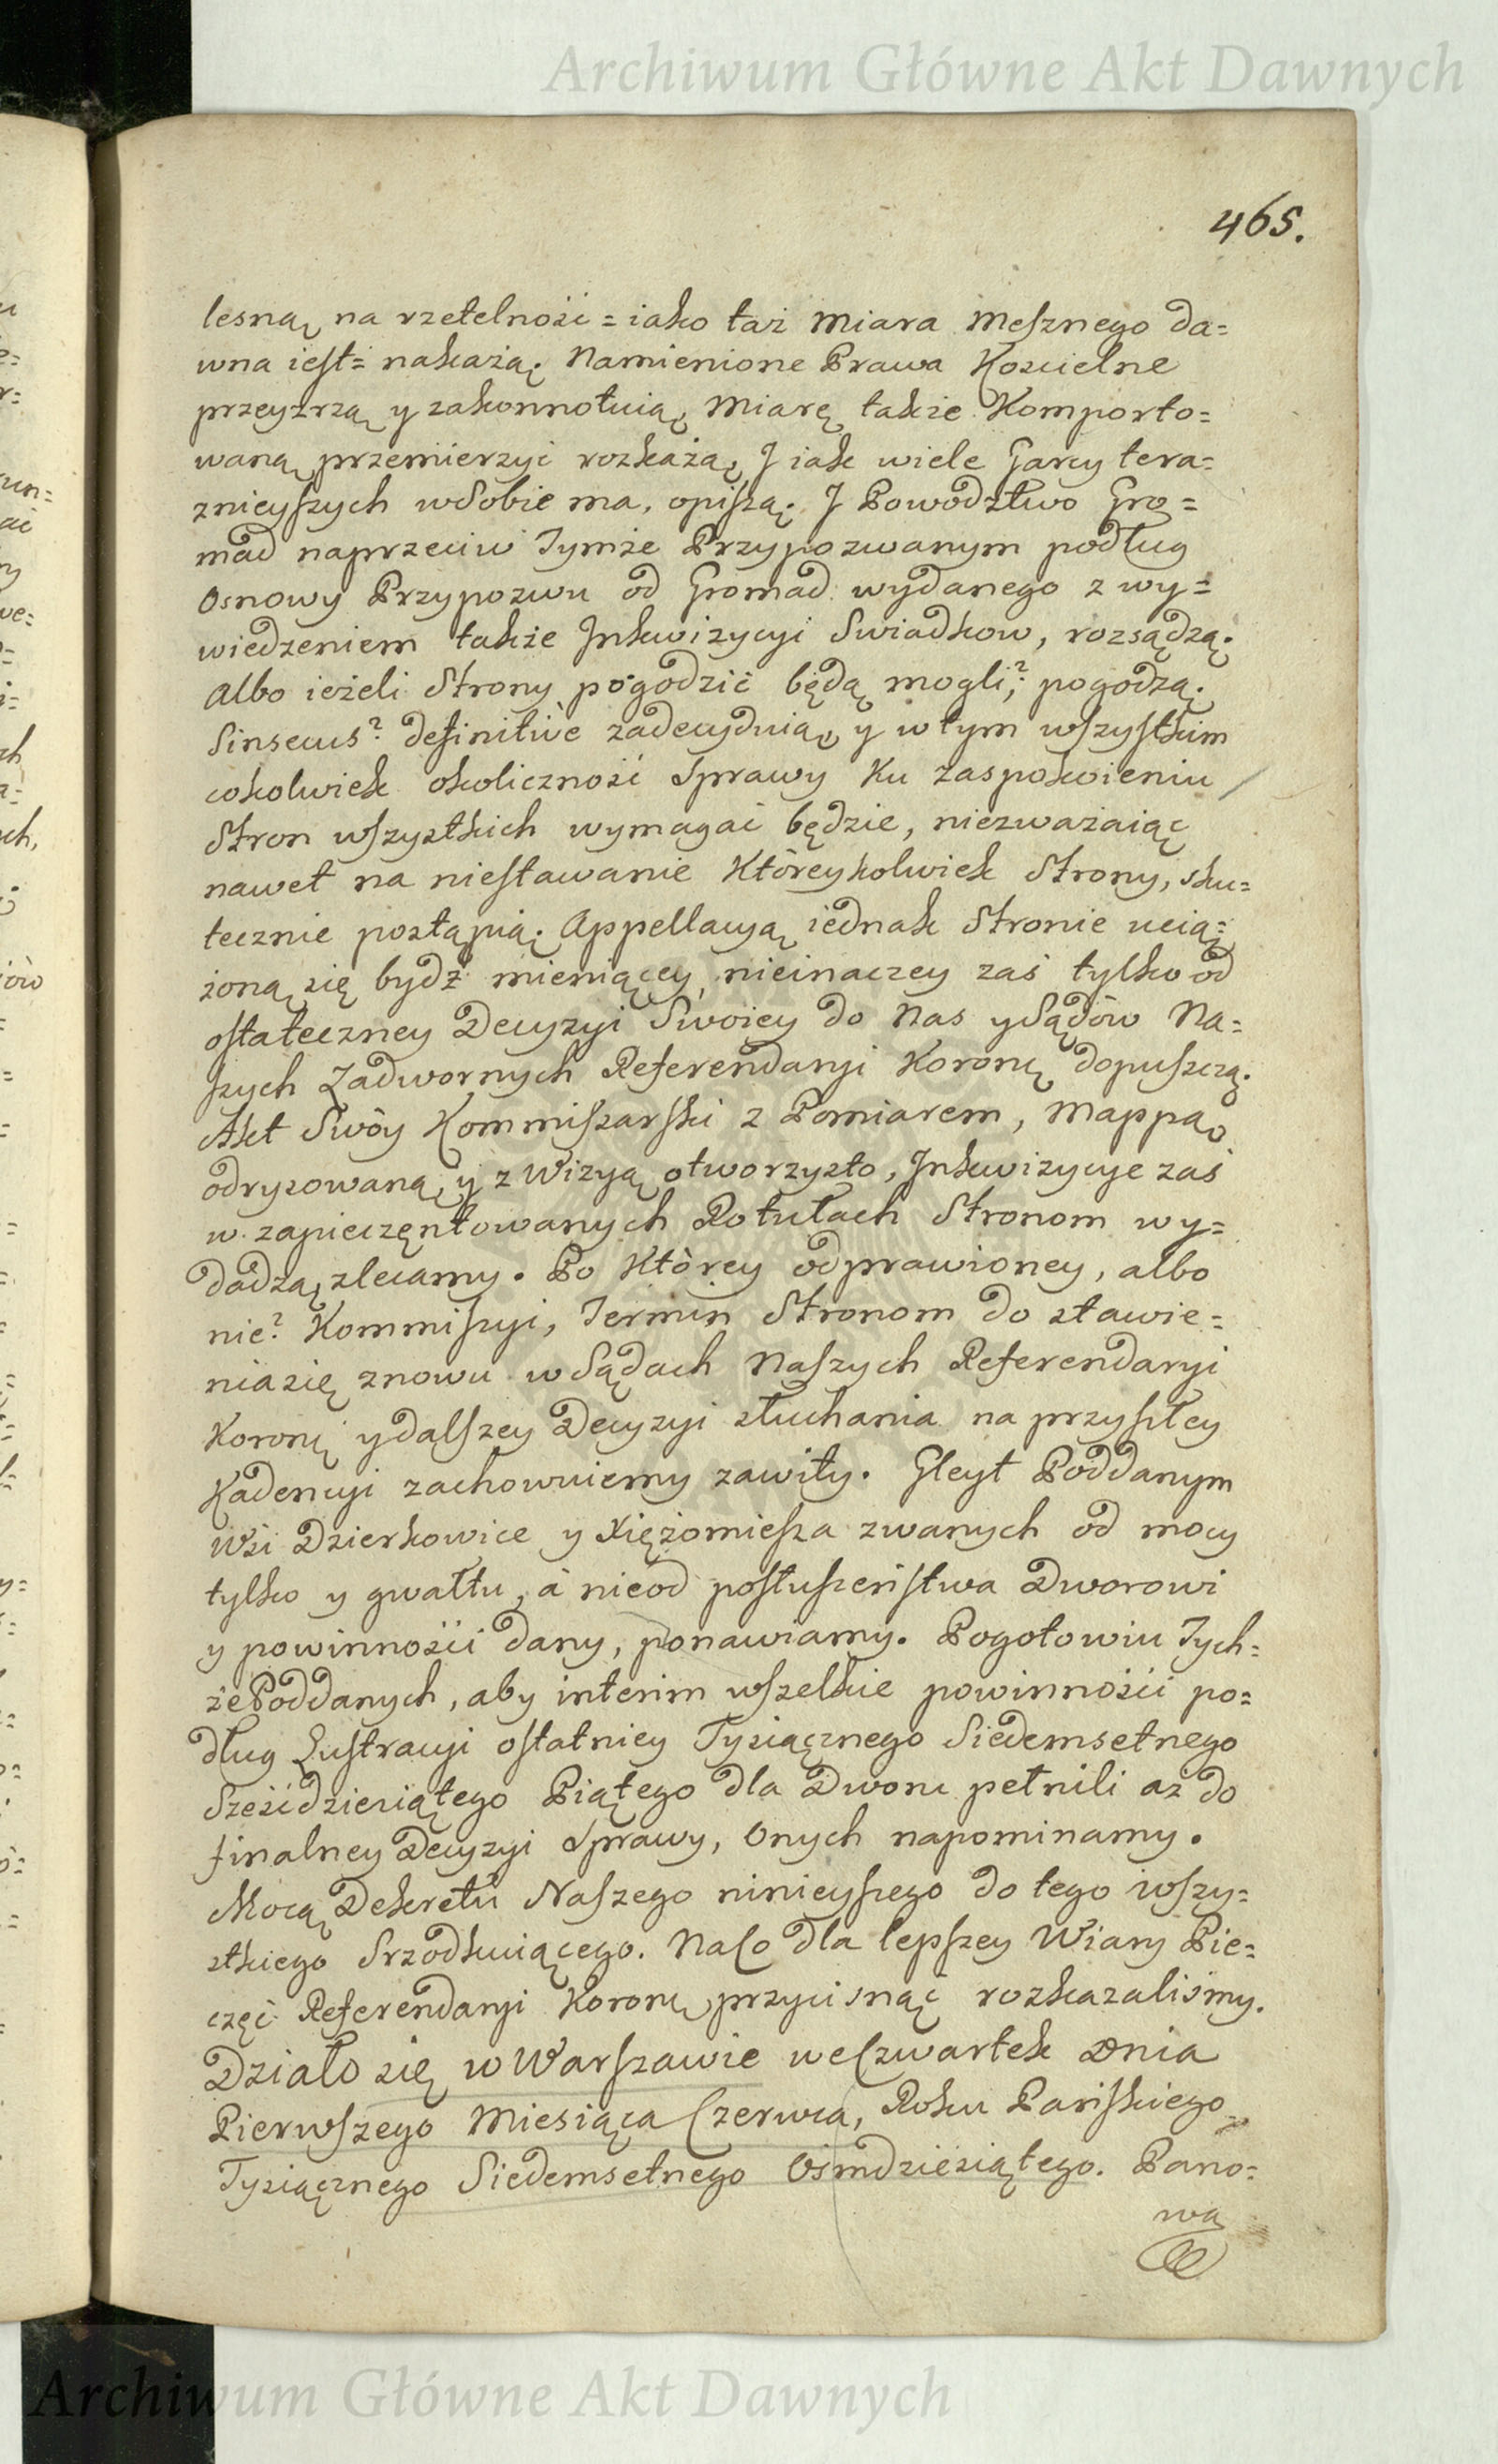 Archiwum Główne Akt Dawnych
465.
lesną na rzetelność = iako taż Miara Mesznego da=
wna iest= nakażą. Namienione Prawa Koscielne
przeyzrzą y zakonnotuią, Miarę także Komporto=
waną przemierzyć rozkażą, J iak wiele Garcy tera=
znieyszych w Sobie ma, opiszą. J Powodztwo Gro=
mad naprzeciw Tymże Przypozwanym podług
Osnowy Przypozwu od Gromad wydanego z wy=
wiedzeniem także Jnkwizycyi Swiadkow, rozsądzą.
Albo ieżeli Strony pogodzić będą mogli? pogodzą.
Sinsecus? definitivè zadecyduią, y w tym wszystkim
cokolwiek okoliczność Sprawy Ku Zaspokoieniu
Stron wszystkich wymagać będzie, niezważaiąc
nawet na niestawanie Któreykolwiek Strony, sku=
tecznie postąpią. Appellacyą iednak Stronie ucią=
żoną się bydź mieniącey, nieinaczey zaś tylko od
ostateczney Decyzyi Swoiey do Nas y Sądów Na=
szych Zadwornych Referendaryi Koronney dopuszczą.
Akt Swóy Kommissarski z Pomiarem, Mappą
odrysowaną, y z Wizyą otworzysto, Jnkwizycye zaś
w zapieczętowanych Rotułach Stronom wy=
dadzą, zlecamy. Po Którey odprawioney, albo
nie? Kommissyi, Termin Stronom do stawie=
nia się znowu w Sądach Naszych Referendaryi
Koronney y dalszey Decyzyi słuchania na przyszłey
Kadencyi zachowuiemy zawity. Gleyt Poddanym
Wsi Dzierkowice y Xiężomiesza zwanych od mocy
tylko y gwałtu, à nie od posłuszeństwa Dworowi
y powinności dany, ponawiamy. Pogotowiu Tych=
że Poddanych, aby interim wszelkie powinności po=
dług Lustracyi ostatniey Tysiącznego Siedemsetnego
Sześćdziesiątego Piątego dla Dworu pełnili aż do
finalney Decyzyi Sprawy, Onych napominamy.
Mocą Dekretu Naszego ninieyszego do tego wszy=
stkiego Srzodkuiącego. Na Co dla lepszey Wiary Pie=
częć Referendaryi Koronney przycisnąć rozkazaliśmy.
Działo się w Warszawie we Czwartek Dnia
Pierwszego Miesiąca Czerwca, Roku Pańskiego
Tysiącznego Siedemsetnego Osmdziesiątego. Pano=
wa
Archiwum Główne Akt Dawnych